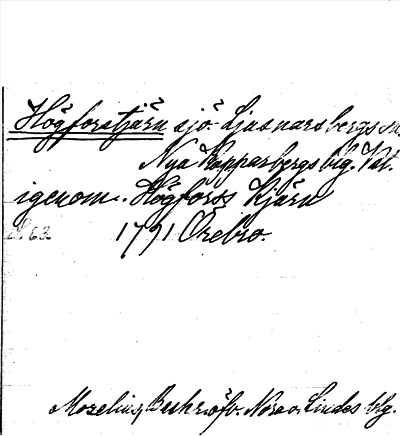 Högforstjärn sjö Ljusnarsbergs sn.
Nya Kopparbergs blg. Vat.
igenom. Högforss Kjärn
1791 Örebro.
Moselius, Beskr. öfv. Nora o. Lindes blg.